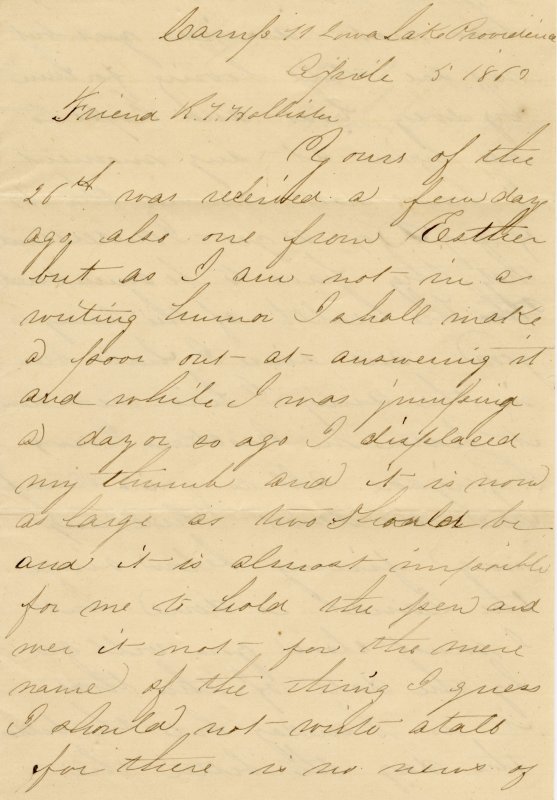 Camp 11 Iowa Lake Providence
Aprile 5 1863
Friend R. T. Hollister
Yours of the
26th was received a few days
ago also one from Esther
but as I am not in a
writing humor I shall make
a poor out at answering it
and while I was jumping
a day or so ago I displaced
my thumb and it is now
as large as two should be
and it is almost impossible
for me to hold the pen and
wer it not for the mere
name of the thing I guess
I should not write atall
for there is no news of